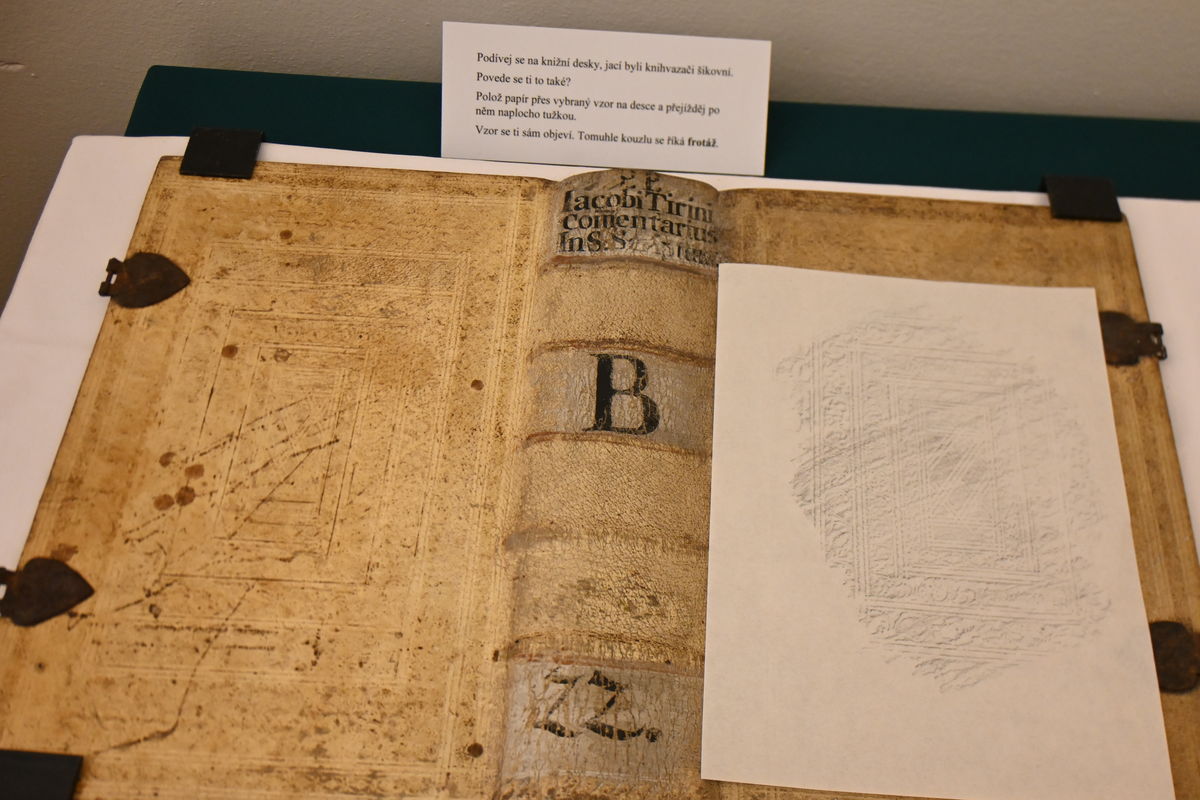 Podívej se na knižní desky, jací byli knihvazači šikovní.
Povede se ti to také?
Polož papír přes vybraný vzor na desce a přejížděj po
něm naplocho tužkou.
Vzor se ti sám objeví. Tomuhle kouzlu se říká frotáž.
Iacobi Tirini
comentarius
In S. S.
B